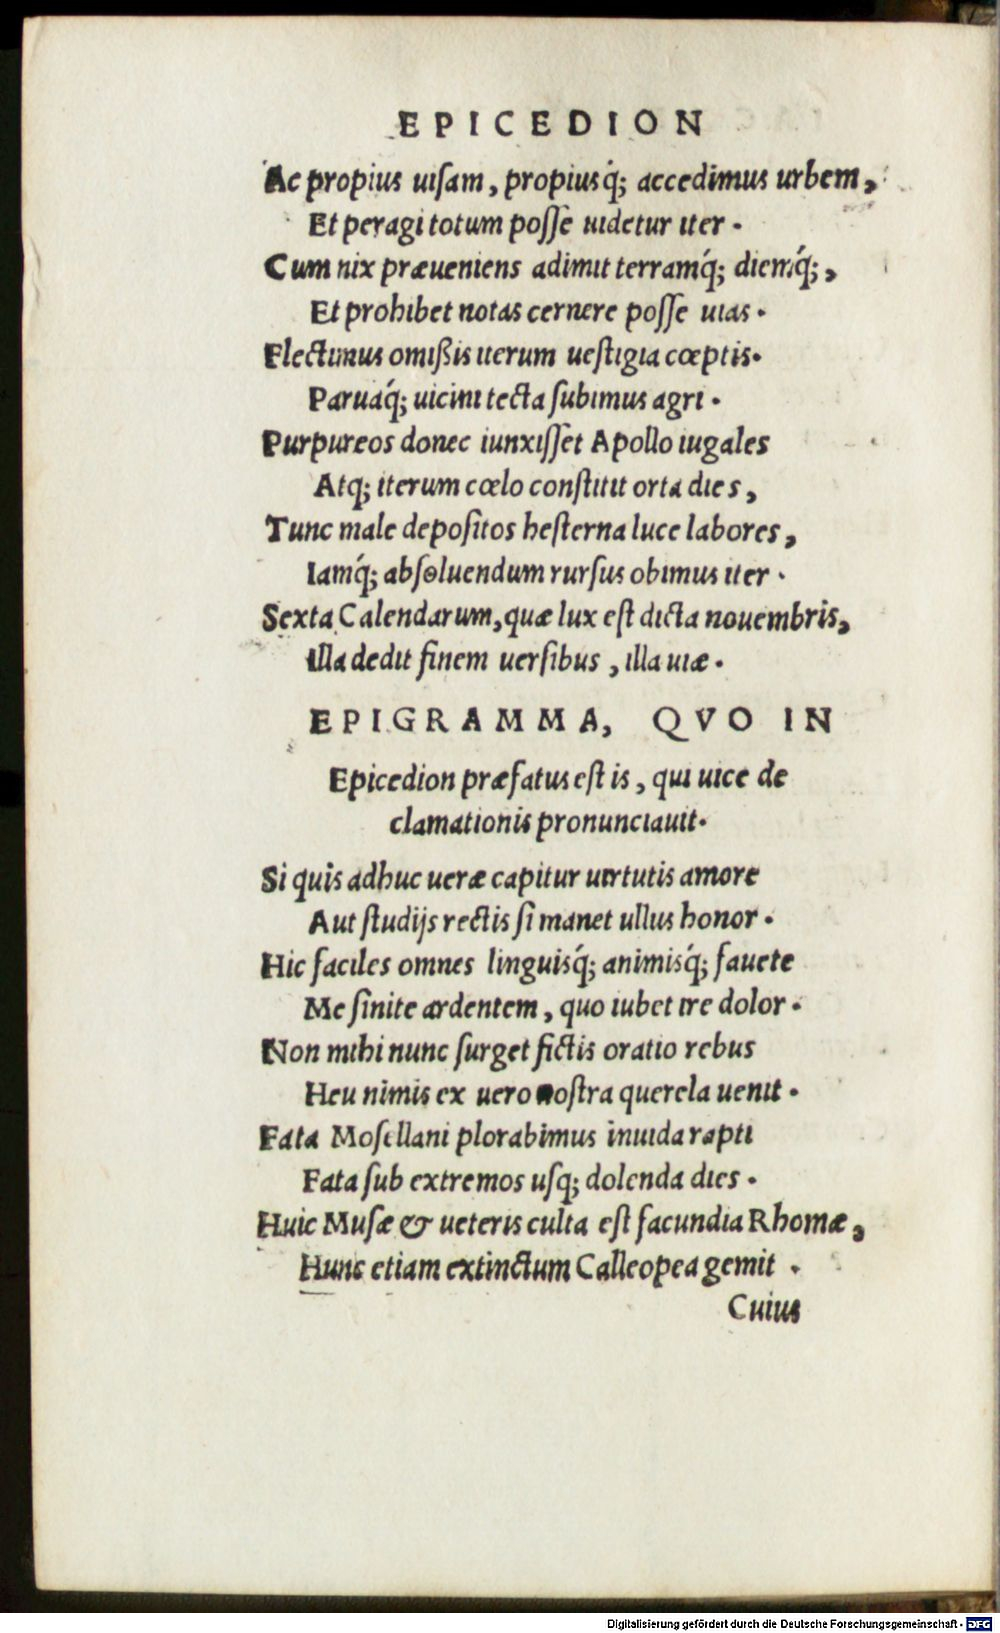 EPICEDION
Ac propius uisam, propiusq́; accedimus urbem,
Et peragi totum posse uidetur iter.
Cum nix præueniens adimit terramq́; diemq́;,
Et prohibet notas cernere posse uias.
Flectimus omißis iterum uestigia cœptis.
Paruaq́; uicini tecta subimus agri.
Purpureos donec iunxisset Apollo iugales
Atq; iterum cœlo constitit orta dies,
Tunc male depositos hesterna luce labores,
Iamq́; absoluendum rursus obimus iter.
Sexta Calendarum, quæ lux est dicta nouembris,
Illa dedit finem uersibus, illa uiæ.
EPIGRAMMA, QVO IN
Epicedion præfatus est is, qui uice de
clamationis pronunciauit.
Si quis adhuc ueræ capitur uirtutis amore
Aut studijs rectis si manet ullus honor.
Hic faciles omnes linguisq́; animisq́; fauete
Me sinite ardentem, quo iubet ire dolor.
Non mihi nunc surget fictis oratio rebus
Heu nimis ex uero nostra querela uenit.
Fata Mosellani plorabimus inuida rapti
Fata sub extremos usq; dolenda dies.
Huic Musæ & ueteris culta est facundia Rhomæ,
Hunc etiam extinctum Calleopea gemit.
Cuius
Digitalisierung gefördert durch die Deutsche Forschungsgemeinschaft - DFG